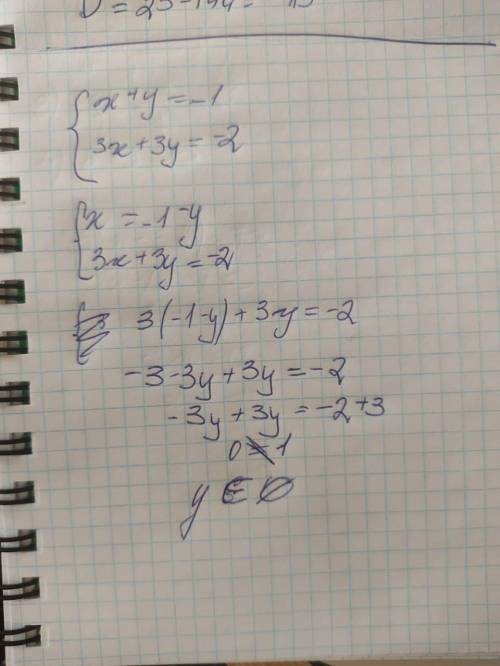 x+y=-1
3x+3y=-2
x=-1-y
3x+3y=-2
3(-1-y)+3y=-2
-3-3y+3y=-2
-3y+3y=-2+3
0≠1
y∈∅